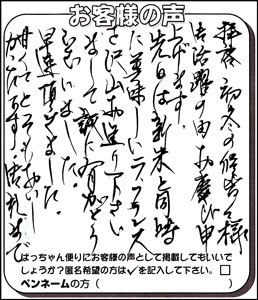 お客様の声
拝啓 初冬の候皆々様
御活躍の由お慶び申し
上げます。
先日は新米と同時
に美味しいラフランス
を沢山お送り下さい
まして誠に有がとう
ございました。
早速頂きました。
甘くてとてもおいし
ばっちゃん便りにお客様の声として掲載してもいいで
しょうか?匿名希望の方は✓を記入して下さい。□
ペンネームの方( )